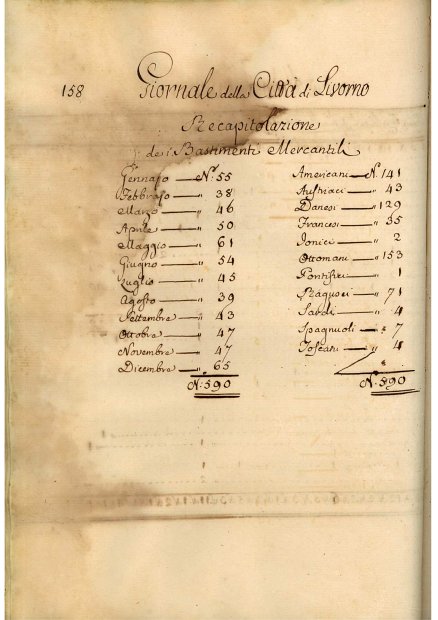 158
Giornale della Città di Livorno
Recapitolazione
de i Bastimenti Mercantili
Gennajo — N.º 55
Febbrajo — " 38
Marzo — " 46
Aprile — " 50
Maggio — " 61
Giugno — " 54
Luglio — " 45
Agosto — " 39
Settembre — " 43
Ottobre — " 47
Novembre — " 47
Dicembre — " 65
N.º 590
Americani — N. 141
Austriaci — " 43
Danesi — " 129
Francesi — " 35
Jonici — " 2
Ottomani — " 153
Pontifizi — " 1
Ragusei — " 71
Sardi — " 4
Spagnuoli — " 7
Toscani — " 4
"
N.º 590